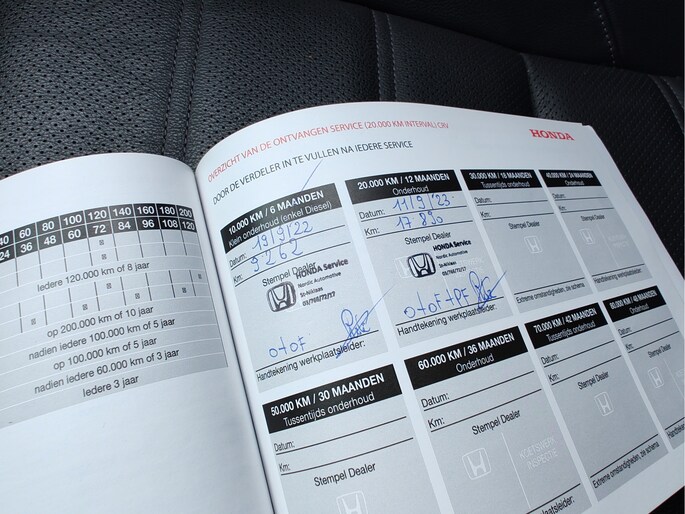 40 60 80 100 120 140 160 180 200
24 36 48 60 72 84 96 108 120
Iedere 120.000 km of 8 jaar
op 200.000 km of 10 jaar
nadien iedere 100.000 km of 5 jaar
op 100.000 km of 5 jaar
nadien iedere 60.000 km of 3 jaar
Iedere 3 jaar
OVERZICHT VAN DE ONTVANGEN SERVICE (20.000 KM INTERVAL) CRV
HONDA
DOOR DE VERDELER IN TE VULLEN NA IEDERE SERVICE
10.000 KM / 6 MAANDEN
Klein onderhoud (enkel Diesel)
Datum: 19/9/22
Km: 9262
Stempel Dealer
HONDA Service
Nordic Automotive
St-Niklaas
O+OF
Handtekening werkplaatsleider:
20.000 KM / 12 MAANDEN
Onderhoud
Datum: 11/9/23
Km: 17 890
Stempel Dealer
HONDA Service
Nordic Automotive
St-Niklaas
O+OF+PF
Handtekening werkplaatsleider:
30.000 KM / 18 MAANDEN
Tussentijds onderhoud
Datum:
Km:
Stempel Dealer
Extreme omstandigheden, zie schema
40.000 KM / 24 MAANDEN
Onderhoud
Datum:
Km:
Stempel Dealer
Handtekening werkplaatsleider:
50.000 KM / 30 MAANDEN
Tussentijds onderhoud
Datum:
Km:
Stempel Dealer
60.000 KM / 36 MAANDEN
Onderhoud
Datum:
Km:
Stempel Dealer
KOETSWERK
INSPECTIE
70.000 KM / 42 MAANDEN
Tussentijds onderhoud
Datum:
Km:
Stempel Dealer
Extreme omstandigheden, zie schema
80.000 KM / 48 MAANDEN
Onderhoud
Datum:
Km: